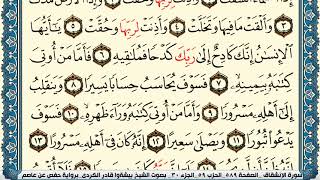 وَأَلْقَتْ مَا فِيهَا وَتَخَلَّتْ ٤ وَأَذِنَتْ لِرَبِّهَا وَحُقَّتْ ٥ يَٰٓأَيُّهَا
ٱلْإِنسَٰنُ إِنَّكَ كَادِحٌ إِلَىٰ رَبِّكَ كَدْحًا فَمُلَٰقِيهِ ٦ فَأَمَّا مَنْ أُوتِيَ
كِتَٰبَهُۥ بِيَمِينِهِۦ ٧ فَسَوْفَ يُحَاسَبُ حِسَابًا يَسِيرًا ٨ وَيَنقَلِبُ
إِلَىٰٓ أَهْلِهِۦ مَسْرُورًا ٩ وَأَمَّا مَنْ أُوتِيَ كِتَٰبَهُۥ وَرَآءَ ظَهْرِهِۦ ١٠ فَسَوْفَ
يَدْعُوا۟ ثُبُورًا ١١ وَيَصْلَىٰ سَعِيرًا ١٢ إِنَّهُۥ كَانَ فِيٓ أَهْلِهِۦ مَسْرُورًا ١٣
سورة الإنشقاق . الصفحة ٥٨٩ . الحزب ٥٩ . الجزء ٣٠ . بصوت الشيخ بيشةوا قادر الكردى . برواية حفص عن عاصم